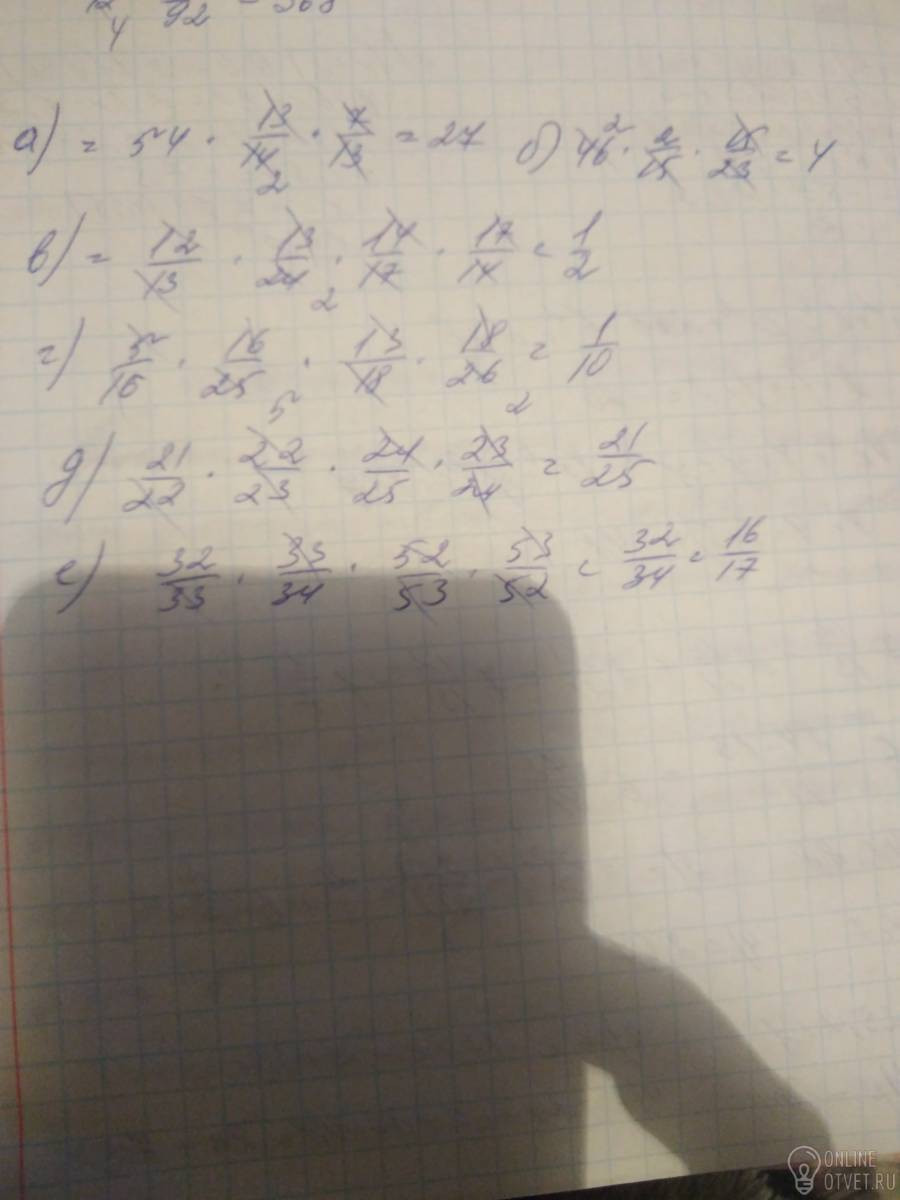 4 92 = 368
а) = 54 · 13/14 2 · 7/13 = 27 б) 46 2 · 2/15 · 15/23 = 4
в) = 12/13 · 13/24 2 · 14/17 · 17/14 = 1/2
г) 5/16 · 16/25 5 · 13/18 · 18/26 2 = 1/10
д) 21/22 · 22/23 · 24/25 · 23/24 = 21/25
е) 32/33 · 33/34 · 52/53 · 53/52 = 32/34 = 16/17
ONLINE
OTVET.RU